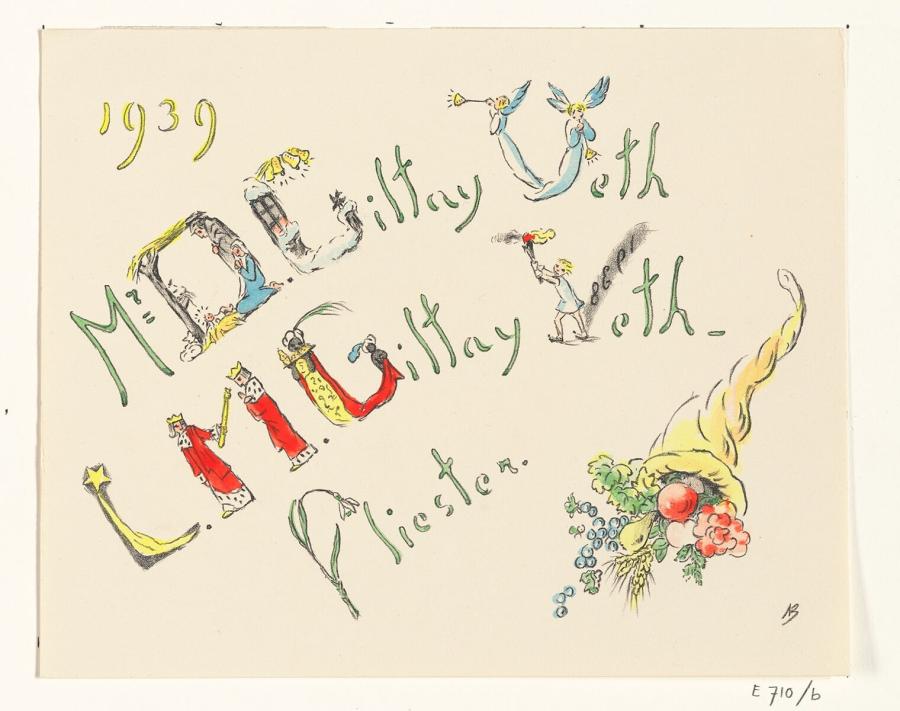 1939
Mr= D. Giltay Veth
L. M. Giltay Veth -
Pliester.
1938
AB
E 710/b